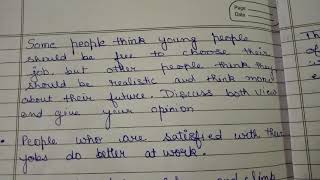 Page
Date
Some people think young people
should be free to choose their
job, but other people think they
should be realistic and think more
about their future. Discuss both view
and give your opinion
• People who are satisfied with their
jobs do better at work.
and climb
Th
of